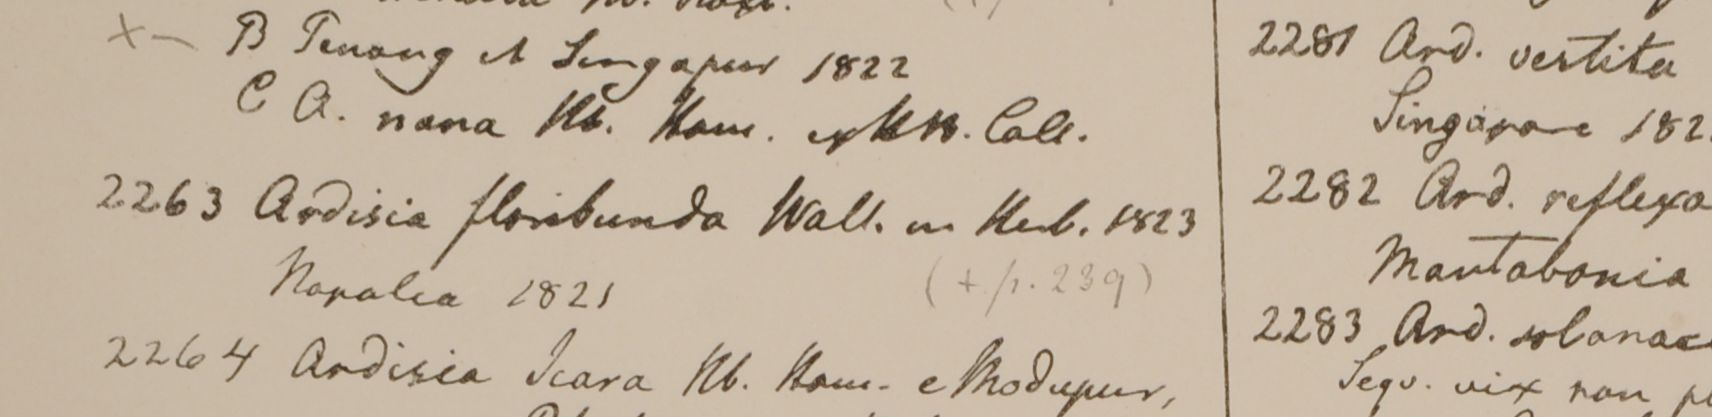 B Penang et Singapur 1822
C A. nana Hb. Ham. ex Hb. Call.
2263 Ardisia floribunda Wall. in Herb. 1823
Napalia 1821 (+ p. 239)
2264 Ardisia Icara Hb. Ham. e Modupur,
2281 Ard. vestita
Singapore 182
2282 Ard. reflexa
Mautabania
2283 Ard. solanac
Seqv. vix non pl